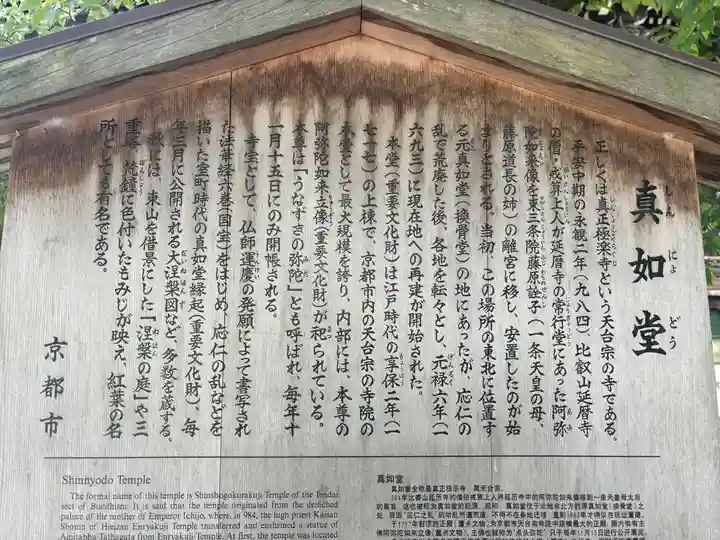 真如堂
しん にょ どう
正しくは真正極楽寺という天台宗の寺である。
平安中期の永観二年(九八四)比叡山延暦寺
の僧・戒算上人が延暦寺の常行堂にあった阿弥
陀如来像を東三条院藤原詮子(一条天皇の母、
藤原道長の姉)の離宮に移し、安置したのが始
まりとされる。当初、この場所の東北に位置す
る元真如堂(換骨堂)の地にあったが、応仁の
乱で荒廃した後、各地を転々とし、元禄六年(一
六九三)に現在地への再建が開始された。
本堂(重要文化財)は江戸時代の享保二年(一
七一七)の上棟で、京都市内の天台宗の寺院の
本堂として最大規模を誇り、内部には、本尊の
阿弥陀如来立像(重要文化財)が祀られている。
本尊は「うなずきの弥陀」とも呼ばれ、毎年十
一月十五日にのみ開帳される。
寺宝として、仏師運慶の発願によって書写され
た法華経六巻(国宝)をはじめ、応仁の乱などを
描いた室町時代の真如堂縁起(重要文化財)、毎
年三月に公開される大涅槃図など、多数を蔵する。
秋には、東山を借景にした「涅槃の庭」や三
重塔、梵鐘に色付いたもみじが映え、紅葉の名
所としても有名である。
京都市
Shinnyodo Temple
The formal name of this temple is Shinshogokurakuji Temple of the Tendai
sect of Buddhism. It is said that the temple originated from the detached
palace of the mother of Emperor Ichijo, where, in 984, the high priest Kaisan
Shonin of Hieizan Enryakuji Temple transferred and enshrined a statue of
Amitabha Tathagata from Enryakuji Temple. At first, the temple was located
真如堂
真如堂全称是真正极乐寺,属天台宗。